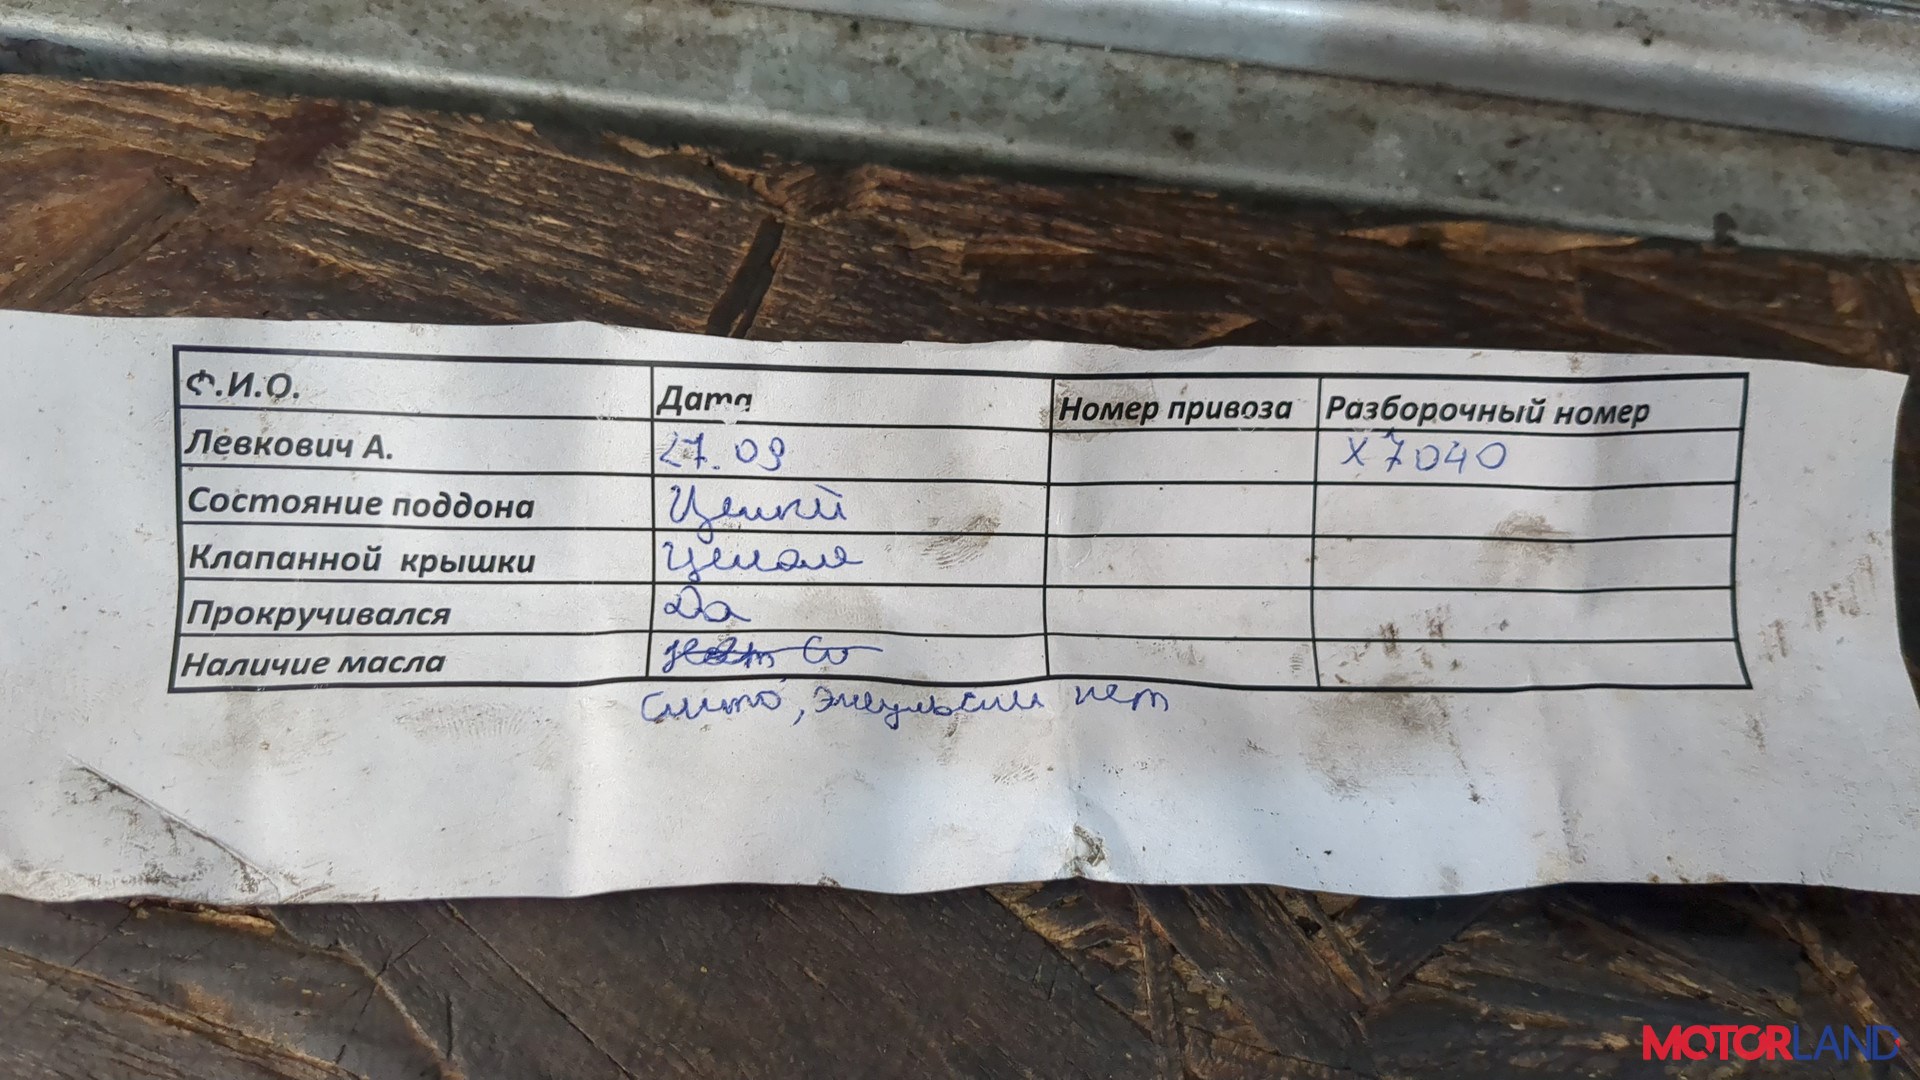 Ф.И.О. Дата Номер привоза Разборочный номер
Левкович А. 27.09 X7040
Состояние поддона Целый
Клапанной крышки Целая
Прокручивался Да
Наличие масла нет Сл
Слито, эмульсии нет
MOTORLAND